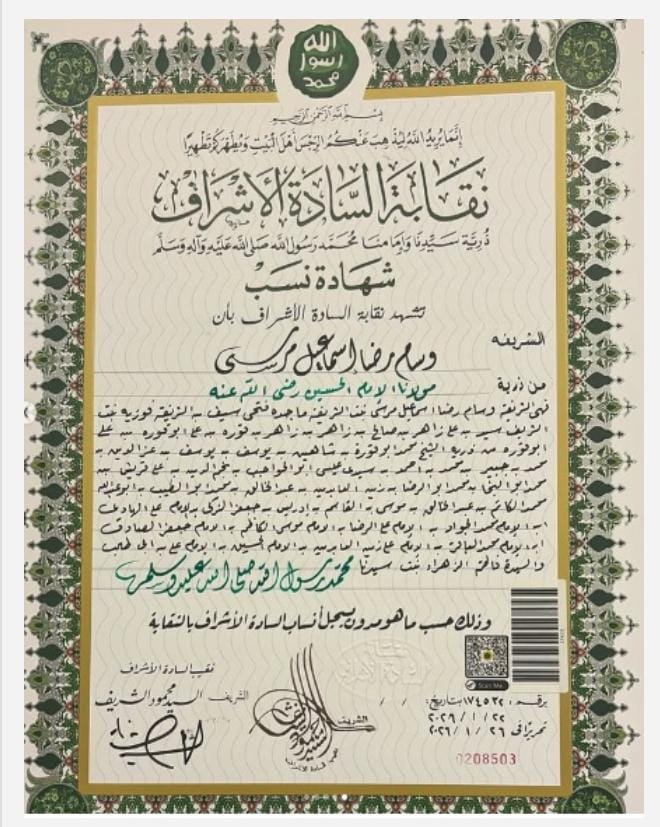 الله
رسول
محمد
بسم الله الرحمن الرحيم
إنما يريد الله ليذهب عنكم الرجس أهل البيت ويطهركم تطهيرا
نقابة السادة الأشراف
ذرية سيدنا وإمامنا محمد رسول الله صلى الله عليه وآله وسلم
شهادة نسب
تشهد نقابة السادة الأشراف بأن
الشريفه
وسام رضا اسماعيل مرسى
من ذرية مولانا الإمام الحسين رضى الله عنه
فهى الشريفة وسام رضا اسماعيل مرسى بنت الشريفة ماجده فتحى سيف بنت الشريفة فوزيه بنت
الشريف سيد بن على زاهر بن صالح بن زاهر بن زاهر بن قوره بن على ابو قوره بن على
ابو قوره من ذرية الشيخ محمد ابو قورة بن شاهين بن يوسف بن يوسف بن عز الدين بن
محمد بن جبير بن محمد بن احمد بن سيدى عيسى ابو المواهب بن نجم الدين بن على قريش بن
محمد ابو النجا بن محمد ابو الرضا بن زين العابدين بن عبد الخالق بن محمد ابو الطيب بن ابو عبدالله
محمد الكاتم بن عبد الخالق بن موسى بن القاسم بن إدريس بن جعفر الزكى بن الإمام على الهادى
ابن الإمام محمد الجواد بن الإمام على الرضا بن الإمام موسى الكاظم بن الإمام جعفر الصادق
ابن الإمام محمد الباقر بن الإمام على زين العابدين بن الإمام الحسين بن الإمام على بن ابى طالب
والسيدة فاطمة الزهراء بنت سيدنا محمد رسول الله صلى الله عليه وسلم
وذلك حسب ما هو مدون بسجل أنساب السادة الأشراف بالنقابة
نقيب السادة الأشراف
الشريف السيد محمود الشريف
الشريف
نقيب السادة الأشراف
Scan Me
برقم: ١٧٤٥٣٢ بتاريخ: / /
٢٠٢٦/١/٢٢
تحريرا فى ٢٠٢٦/١/٢٦
0208503